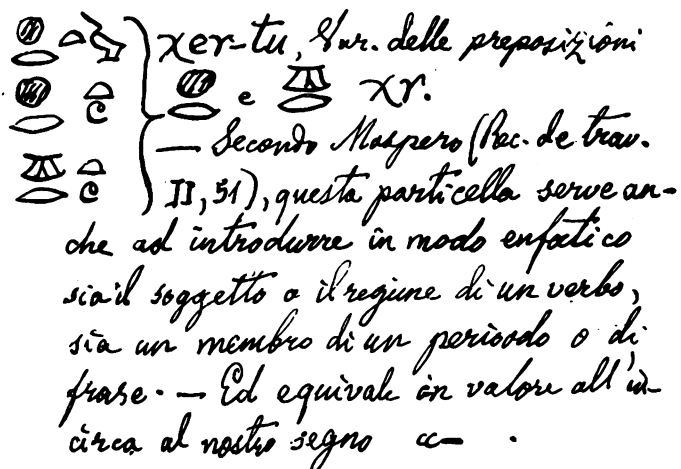 χer-tu, Var. delle preposizioni
e χr.
— Secondo Maspero (Rec. de trav.
II, 51), questa particella serve an-
che ad introdurre in modo enfatico
sia il soggetto o il regime di un verbo,
sia un membro di un periodo o di
frase. — Ed equivale in valore all'in-
circa al nostro segno «— .